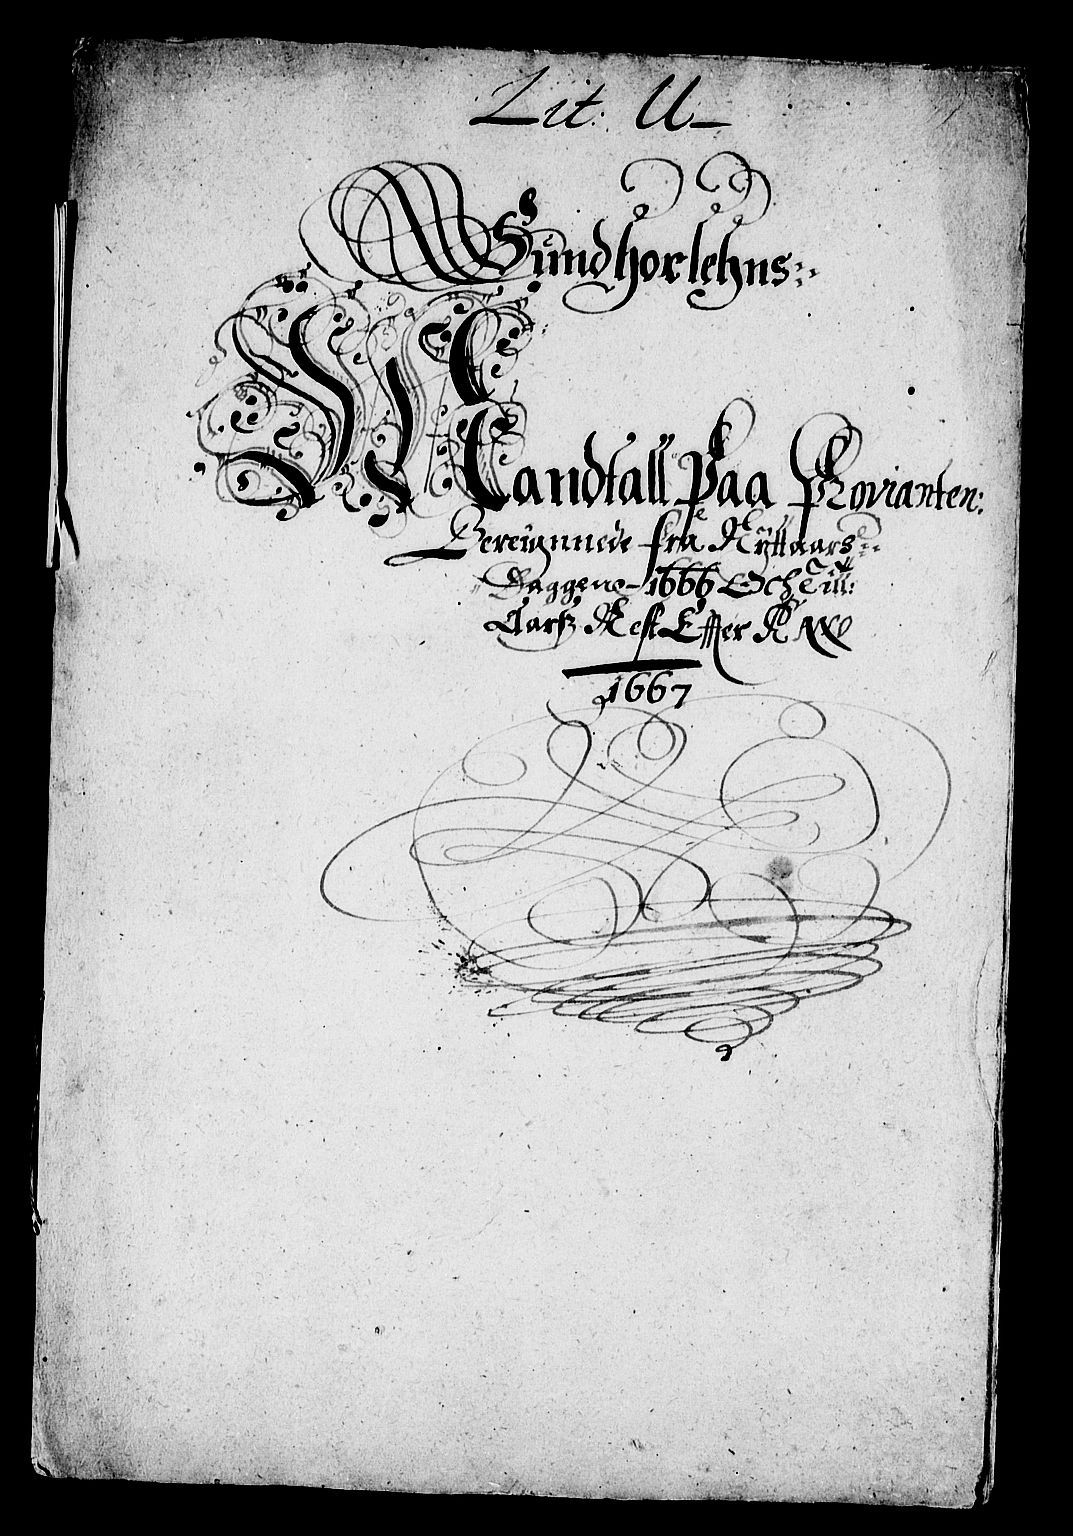 Lit: U_
Sundhorlehns
Mandtall Paa Provianten:
Bereignnede fra Nÿttaars
Daggenn 1666 Och Till
Aarsz Rest Effter
1667